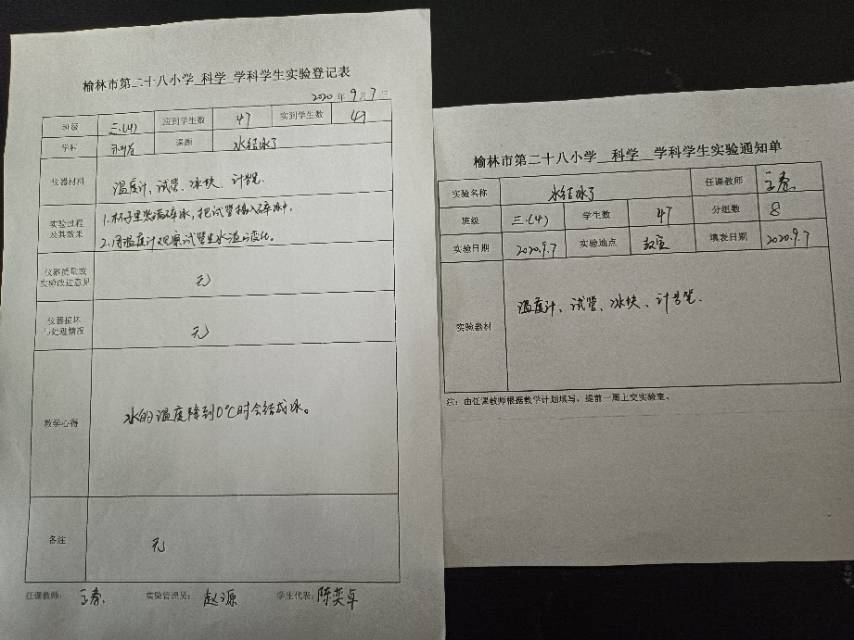 榆林市第二十八小学 科学 学科学生实验登记表
2020年9月7日
班级 三.(4) 应到学生数 47 实到学生数 47
学科 科学 课题 水结冰了
仪器材料 温度计、试管、冰块、计时器.
实验过程及其效果 1.杯子里装满碎冰,把试管插入碎冰中.
2.用温度计观察试管里水温的变化。
实验改进意见 无
仪器损坏与处理情况 无
教学心得 水的温度降到0℃时会结成冰。
备注 无
任课教师: 实验管理员: 赵源 学生代表: 陈奕卓
榆林市第二十八小学 科学 学科学生实验通知单
实验名称 水结冰了 任课教师
班级 三.(4) 学生数 47 分组数 8
实验日期 2020.9.7 实验地点 教室 填表日期 2020.9.7
实验器材 温度计、试管、冰块、计时器.
注:由任课教师根据教学计划填写,提前一周上交实验室。